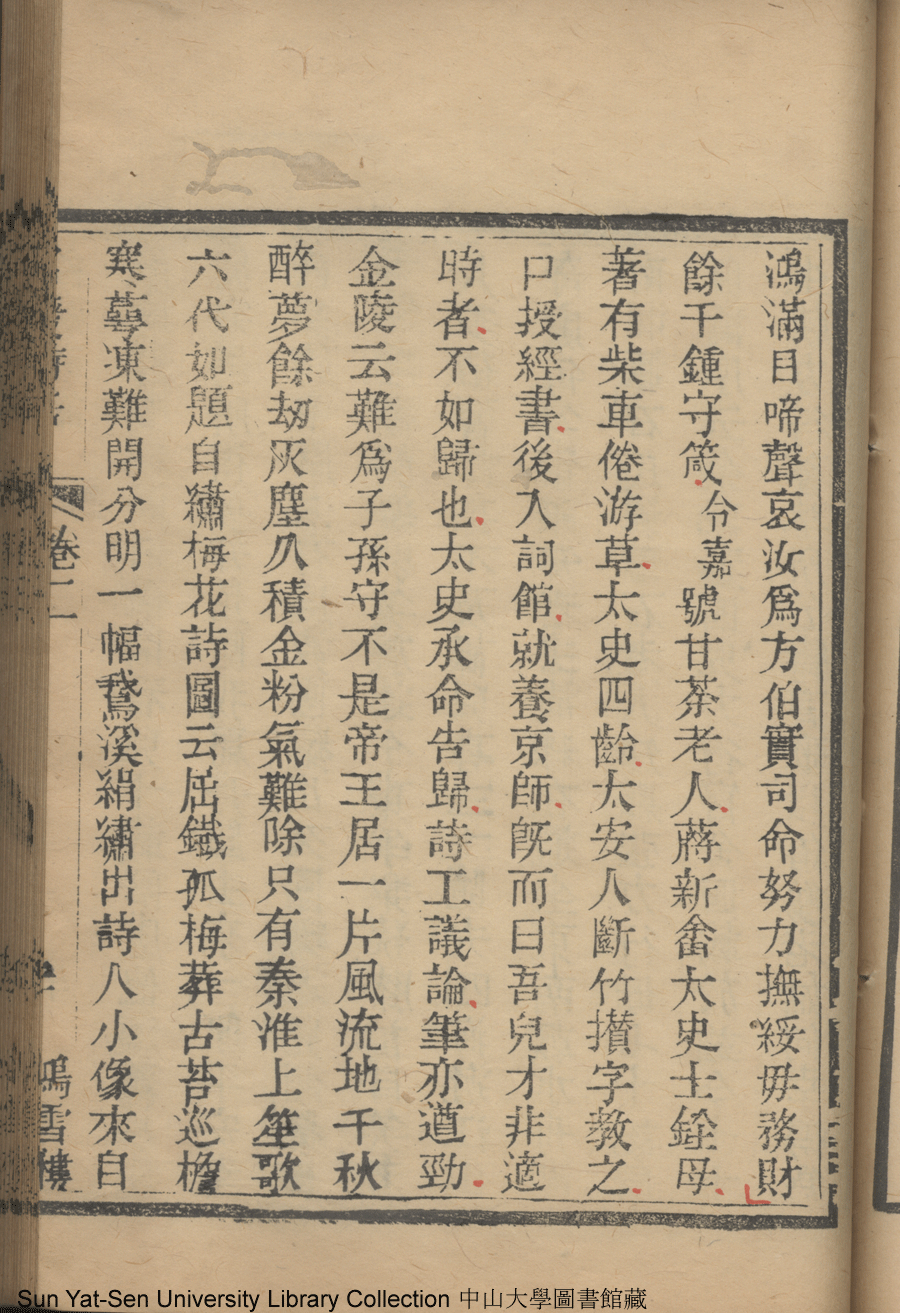 鴻滿目啼聲哀汝爲方伯實司命努力撫綏毋務財
餘千鍾守箴令嘉號甘荼老人蔣新畬太史士銓母
著有柴車倦游草太史四齡太安人斷竹攢字教之
口授經書後入詞館就養京師旣而曰吾兒才非適
時者不如歸也太史承命告歸詩工議論筆亦遒勁
金陵云難爲子孫守不是帝王居一片風流地千秋
醉夢餘劫灰塵久積金粉氣難除只有秦淮上笙歌
六代如題自繡梅花詩圖云屈鐵孤梅葬古苔巡檐
寒萼凍難開分明一幅鵞溪絹繡出詩人小像來自
卷二
鳴雪樓
Sun Yat-Sen University Library Collection 中山大學圖書館藏